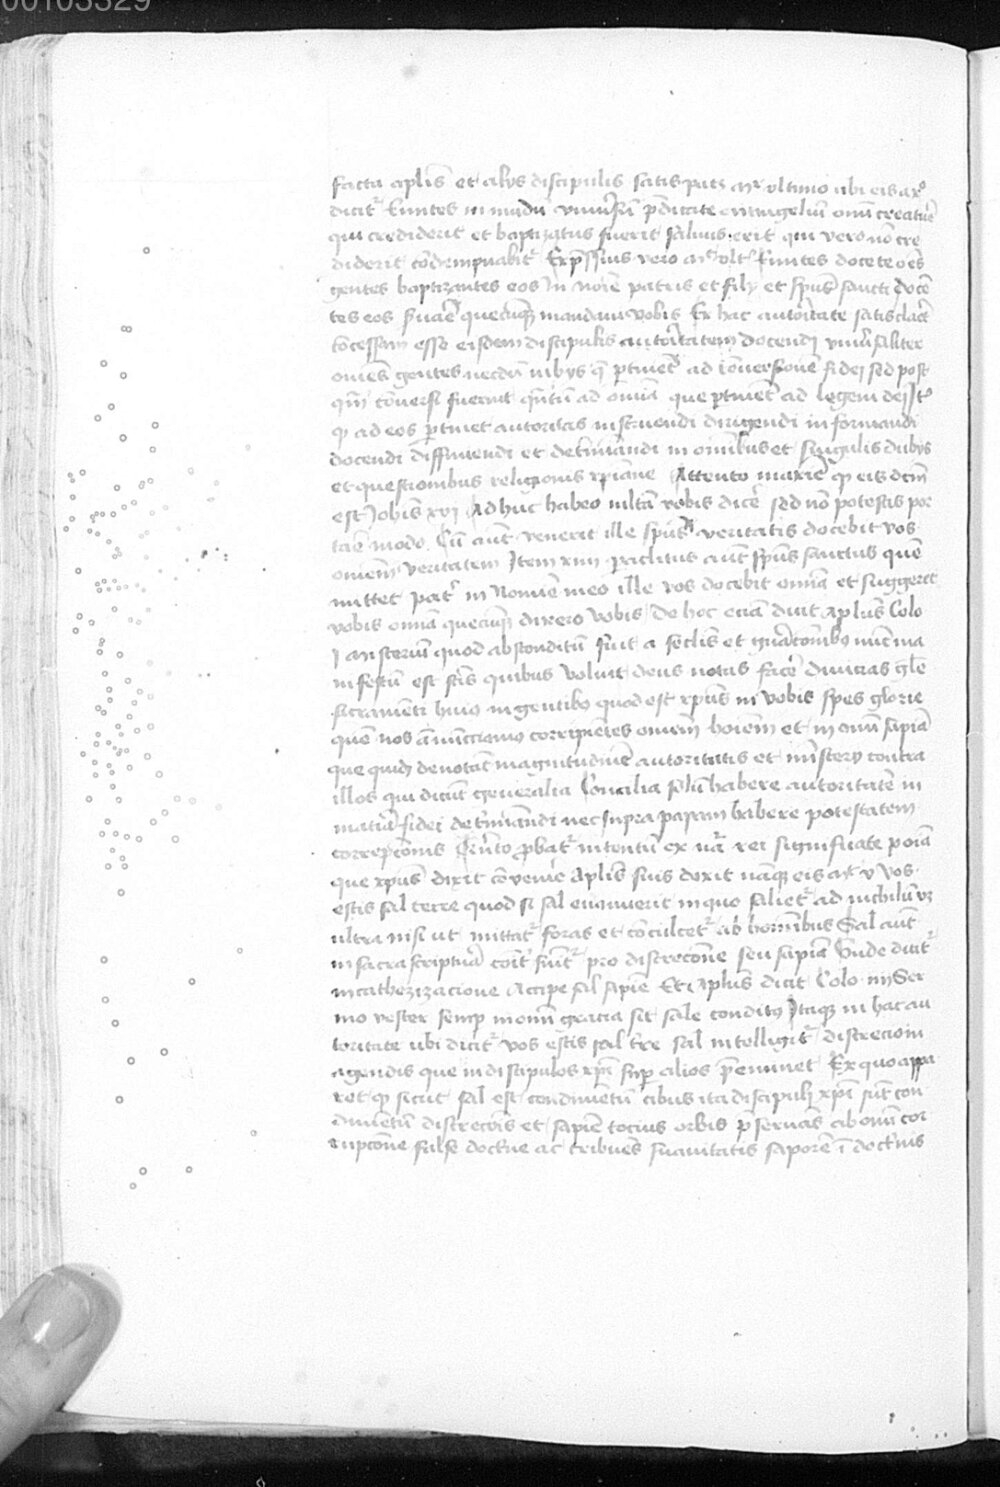 00103329
facta aplis et alijs discipulis satis patz mr ultimo ubi eis
dicitr Euntes in mundū univsū pdicate evangeliū omni creature
qui crediderit et baptizatus fuerit salvus erit qui vero nō cre
diderit cōdempnabitr Expssius vero mt ultº Euntes docete oēs
gentes baptizantes eos In noīe patris et filij et spūs sancti docē
tes eos svare quecūqz mandavi vobis Ex hac autoritate satis claret
cōcessam esse eisdem discipulis autoritatem docendi univsaliter
omnes gentes necdū in hijs q ptinet ad cōversionē fidei sed post
qm cōversi fuerint qntū ad omnia que ptinet ad legem dei
q ad eos ptinet autoritas instruendi dirigendi informandi
docendi diffiniendi et detminandi in omnibus et singulis dubijs
et questionibus religionis xpiane Attento maxīe q eis dcm
est Johīs xvj Adhuc habeo multa vobis dicē sed nō potestis por
tare modo Cū aūt venerit ille spūs veritatis docebit vos
omnem veritatem Item xiiij paclitus aūt spūs sanctus quē
mittet patr in Nomīe meo ille vos docebit omnia et suggeret
vobis omnia quecūqz dixero vobis De hoc etiā dicit Aplus Colo
j misterium quod absconditū fuit a seclis et gnacōibus nunc ma
nifestū est scis quibus voluit deus notas facē divicias glē
sacramenti huius in gentibus quod est xpus in vobis spes glorie
quē nos annūcciamus corripiētes omnem hoīem et in omni sapiā
que quidz denotāt magnitudinē autoritatis et misterij contra
illos qui dicūt generalia Concilia solū habere autoritatē in
matia fidei detminandi nec supra papam habere potestatem
correpcōnis Quto pbatr intentū ex nra rei significate p oīa
que xpus dixit cōvenire Aplis suis dixit nāqz eis mt v Vos
estis sal terre quod si sal evanuerit in quo salietr ad nichilū vz
ultra nisi ut mittatr foras et cōculcetr ab hominibus Sal aūt
in sacra scriptura cōitr sumitr pro discrecōne seu sapiā Unde dicitr
in cathezizacione Accipe sal sapiē Et Aplus dicit Colo iiij Ser
mo vester semp in omni gracia sit sale conditus Itaqz in hac au
toritate ubi dicitr vos estis sal tre sal intelligitr discrecioni
agendis que in discipulos xpi sup alios preminet Ex quo appa
ret q sicut sal est condimetū cibus ita discipuli xpi sūt con
dimētū discrecōis et sapiē tocius orbis pservās cibonū cor
rupcōne false doctrine ac tribuēs suavitatis saporē ī doctrinis